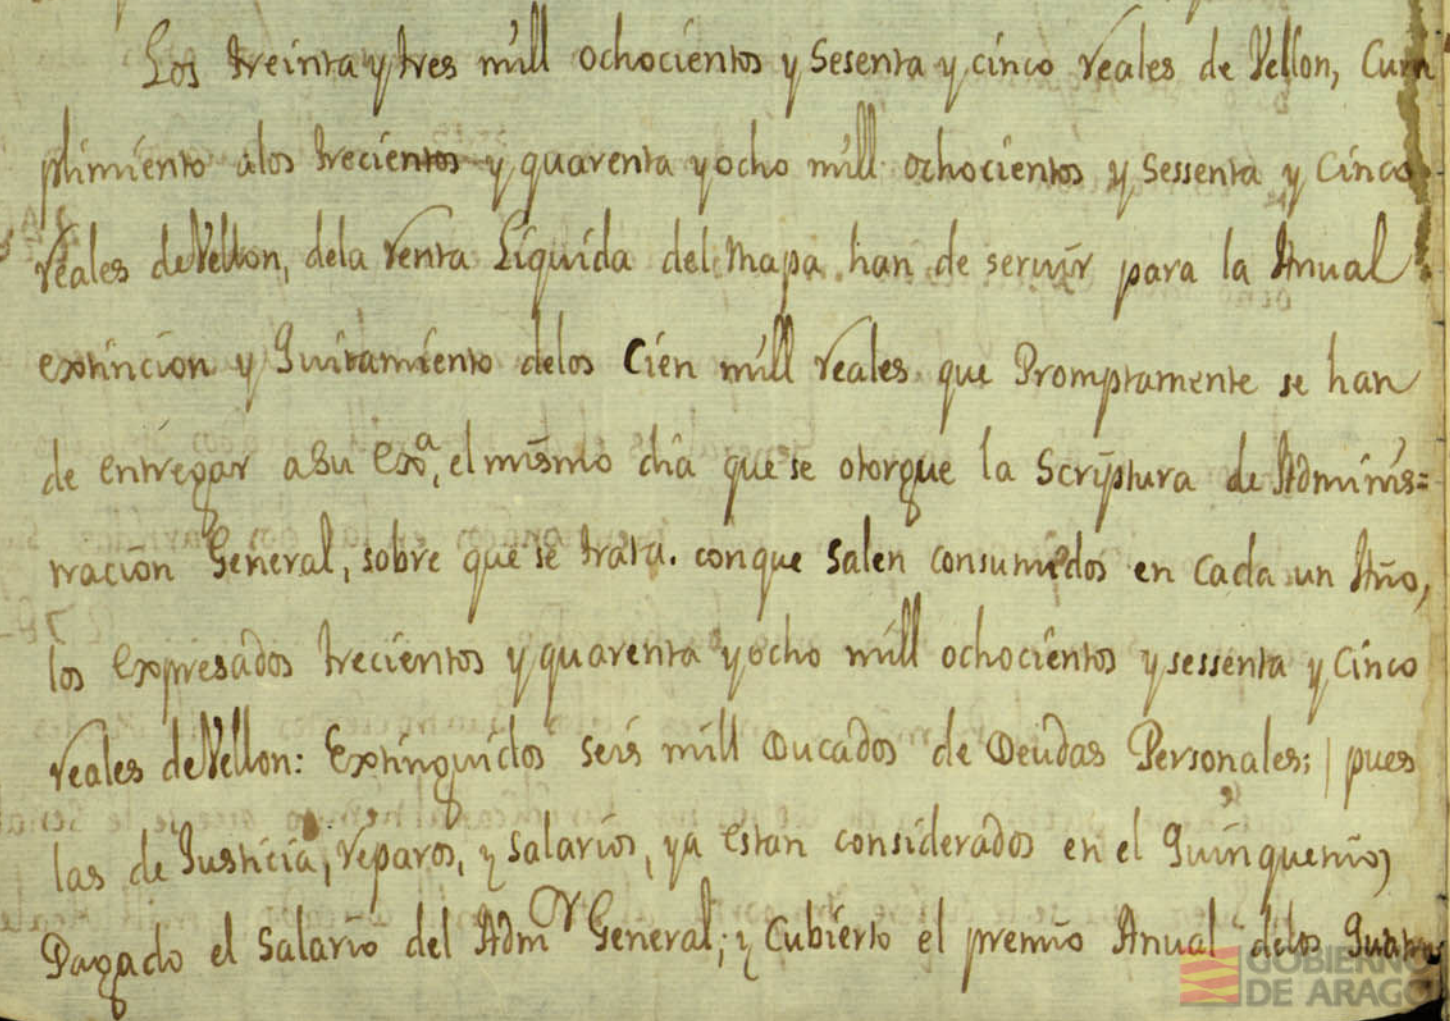 Los treinta y tres mill ochocientos y Sesenta y cinco reales de Vellon, Cum
plimiento alos trecientos y quarenta y ocho mill ochocientos y Sessenta y Cinco
reales de Vellon, dela renta Liquida del Mapa han de servir para la Anual
extincion y Quitamiento delos Cien mill reales que Promptamente se han
de entregar a Su Exa, el mismo dia que se otorgue la Scriptura de Adminis=
tracion General, sobre que se trata. conque Salen consumidos en Cada un Año,
los expresados trecientos y quarenta y ocho mill ochocientos y sessenta y Cinco
reales de Vellon: Extinguidos Seis mill Ducados de Deudas Personales; pues
las de Justicia, reparos, y Salarios, ya estan considerados en el Quinquenio)
Pagado el Salario del Admor General; y Cubierto el premio Anual delos Quatro
GOBIERNO
DE ARAGO